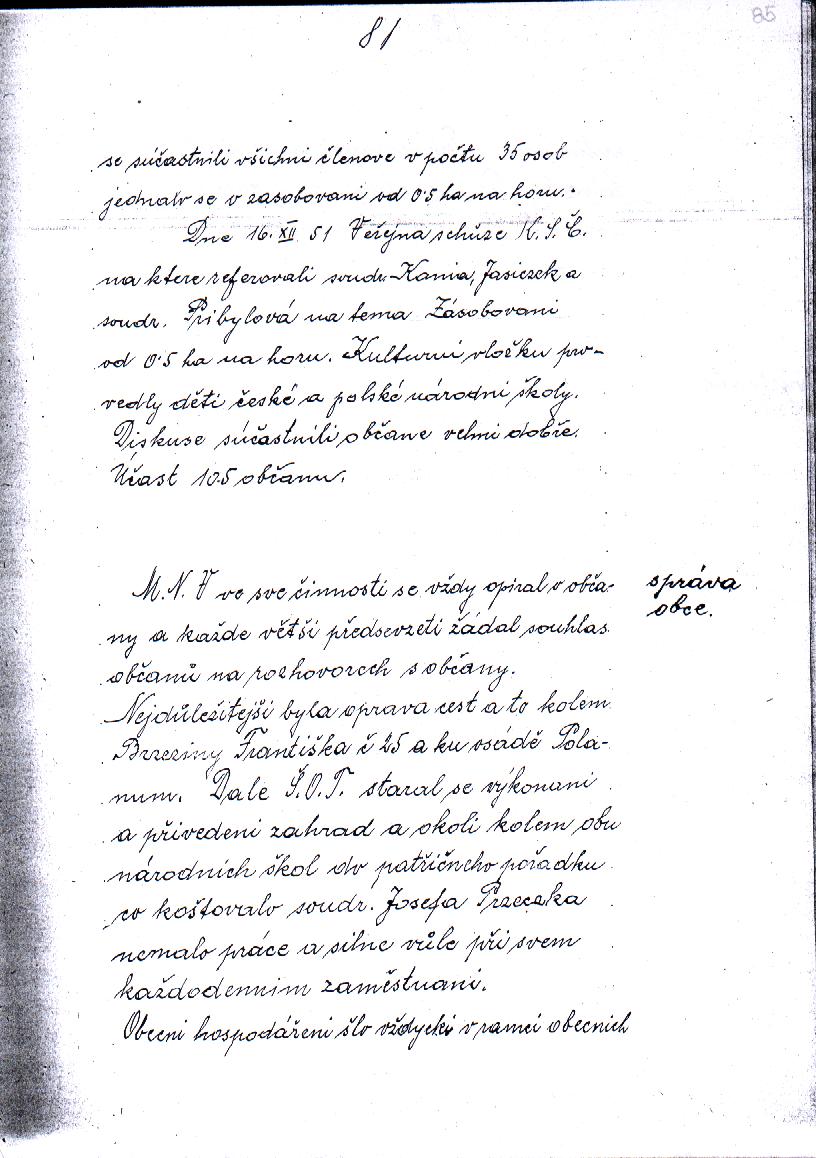 85
81
se súčastnili všichni členove v počtu 35 osob
jednalo se v zasobovani od 0·5 ha na horu.
Dne 16. XII 51 Veřejna schůze K. S. Č.
na ktere referovali soudr. Kania, Jasiczek a
soudr. Pribylová na tema Zásobovani
od 0·5 ha na horu. Kulturní vložku pro-
vedly děti české a polské národní školy.
Diskuse súčastnili občane velmi dobře.
Účast 105 občanu.
M. N. V ve sve činnosti se vždy opiral o obča-
ny a každe větši předsevzeti žádal souhlas
občanů na rozhovorech s občany.
správa
obce.
Nejdůležitejši byla oprava cest a to kolem
Brzeziny Františka č 25 a ku osádě Pola-
num. Dale Š. O. T. staral se výkonani
a přivedeni zahrad a okoli kolem obu
národnich škol do patřičneho pořádku
co koštovalo soudr. Josefa Przeczka
nemalo práce a silne vůle při svem
každodennim zaměstnani.
Obecni hospodářeni šlo vždycki v ramci obecnich